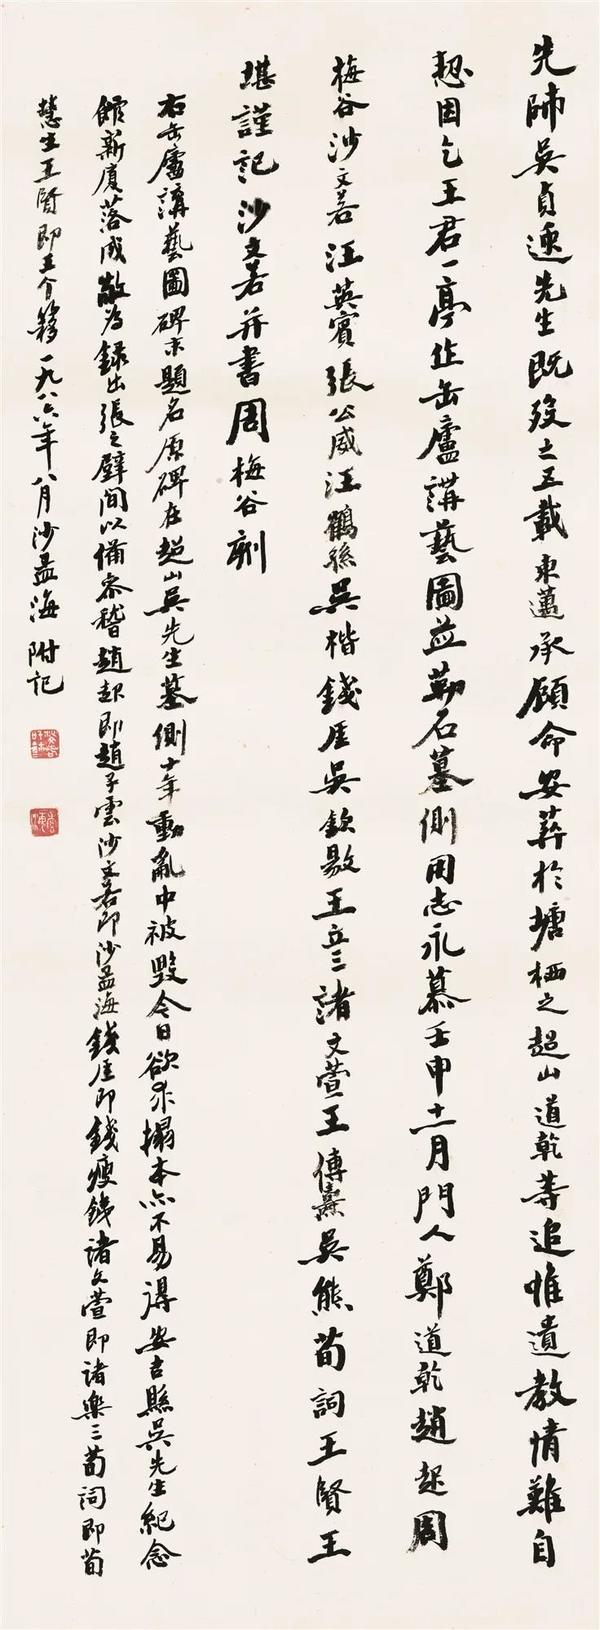 先師吳貞逸先生既歿之五載東邁承顧命安葬於塘栖之超山道乾等追惟遺教情難自
恝因乞王君一亭作缶廬講藝圖並勒石墓側用志永慕壬申十一月門人鄭道乾趙起周
梅谷沙文若江英賓張公威汪鶴孫吳楷錢厓吳欽敭王彦三諸文萱王傳燾吳熊荀詞王賢王
堪謹記沙文若并書周梅谷刻
右缶廬講藝圖碑末題名原碑在超山吳先生墓側十年動亂中被毀今日欲求搨本亦不易得安吉縣吳先生紀念
館新厦落成敬為錄出張之壁間以備參稽趙起即趙子雲沙文若即沙孟海錢厓即錢瘦鐵諸文萱即諸樂三荀詞即荀
慧生王賢即王个簃一九八六年八月沙孟海附記